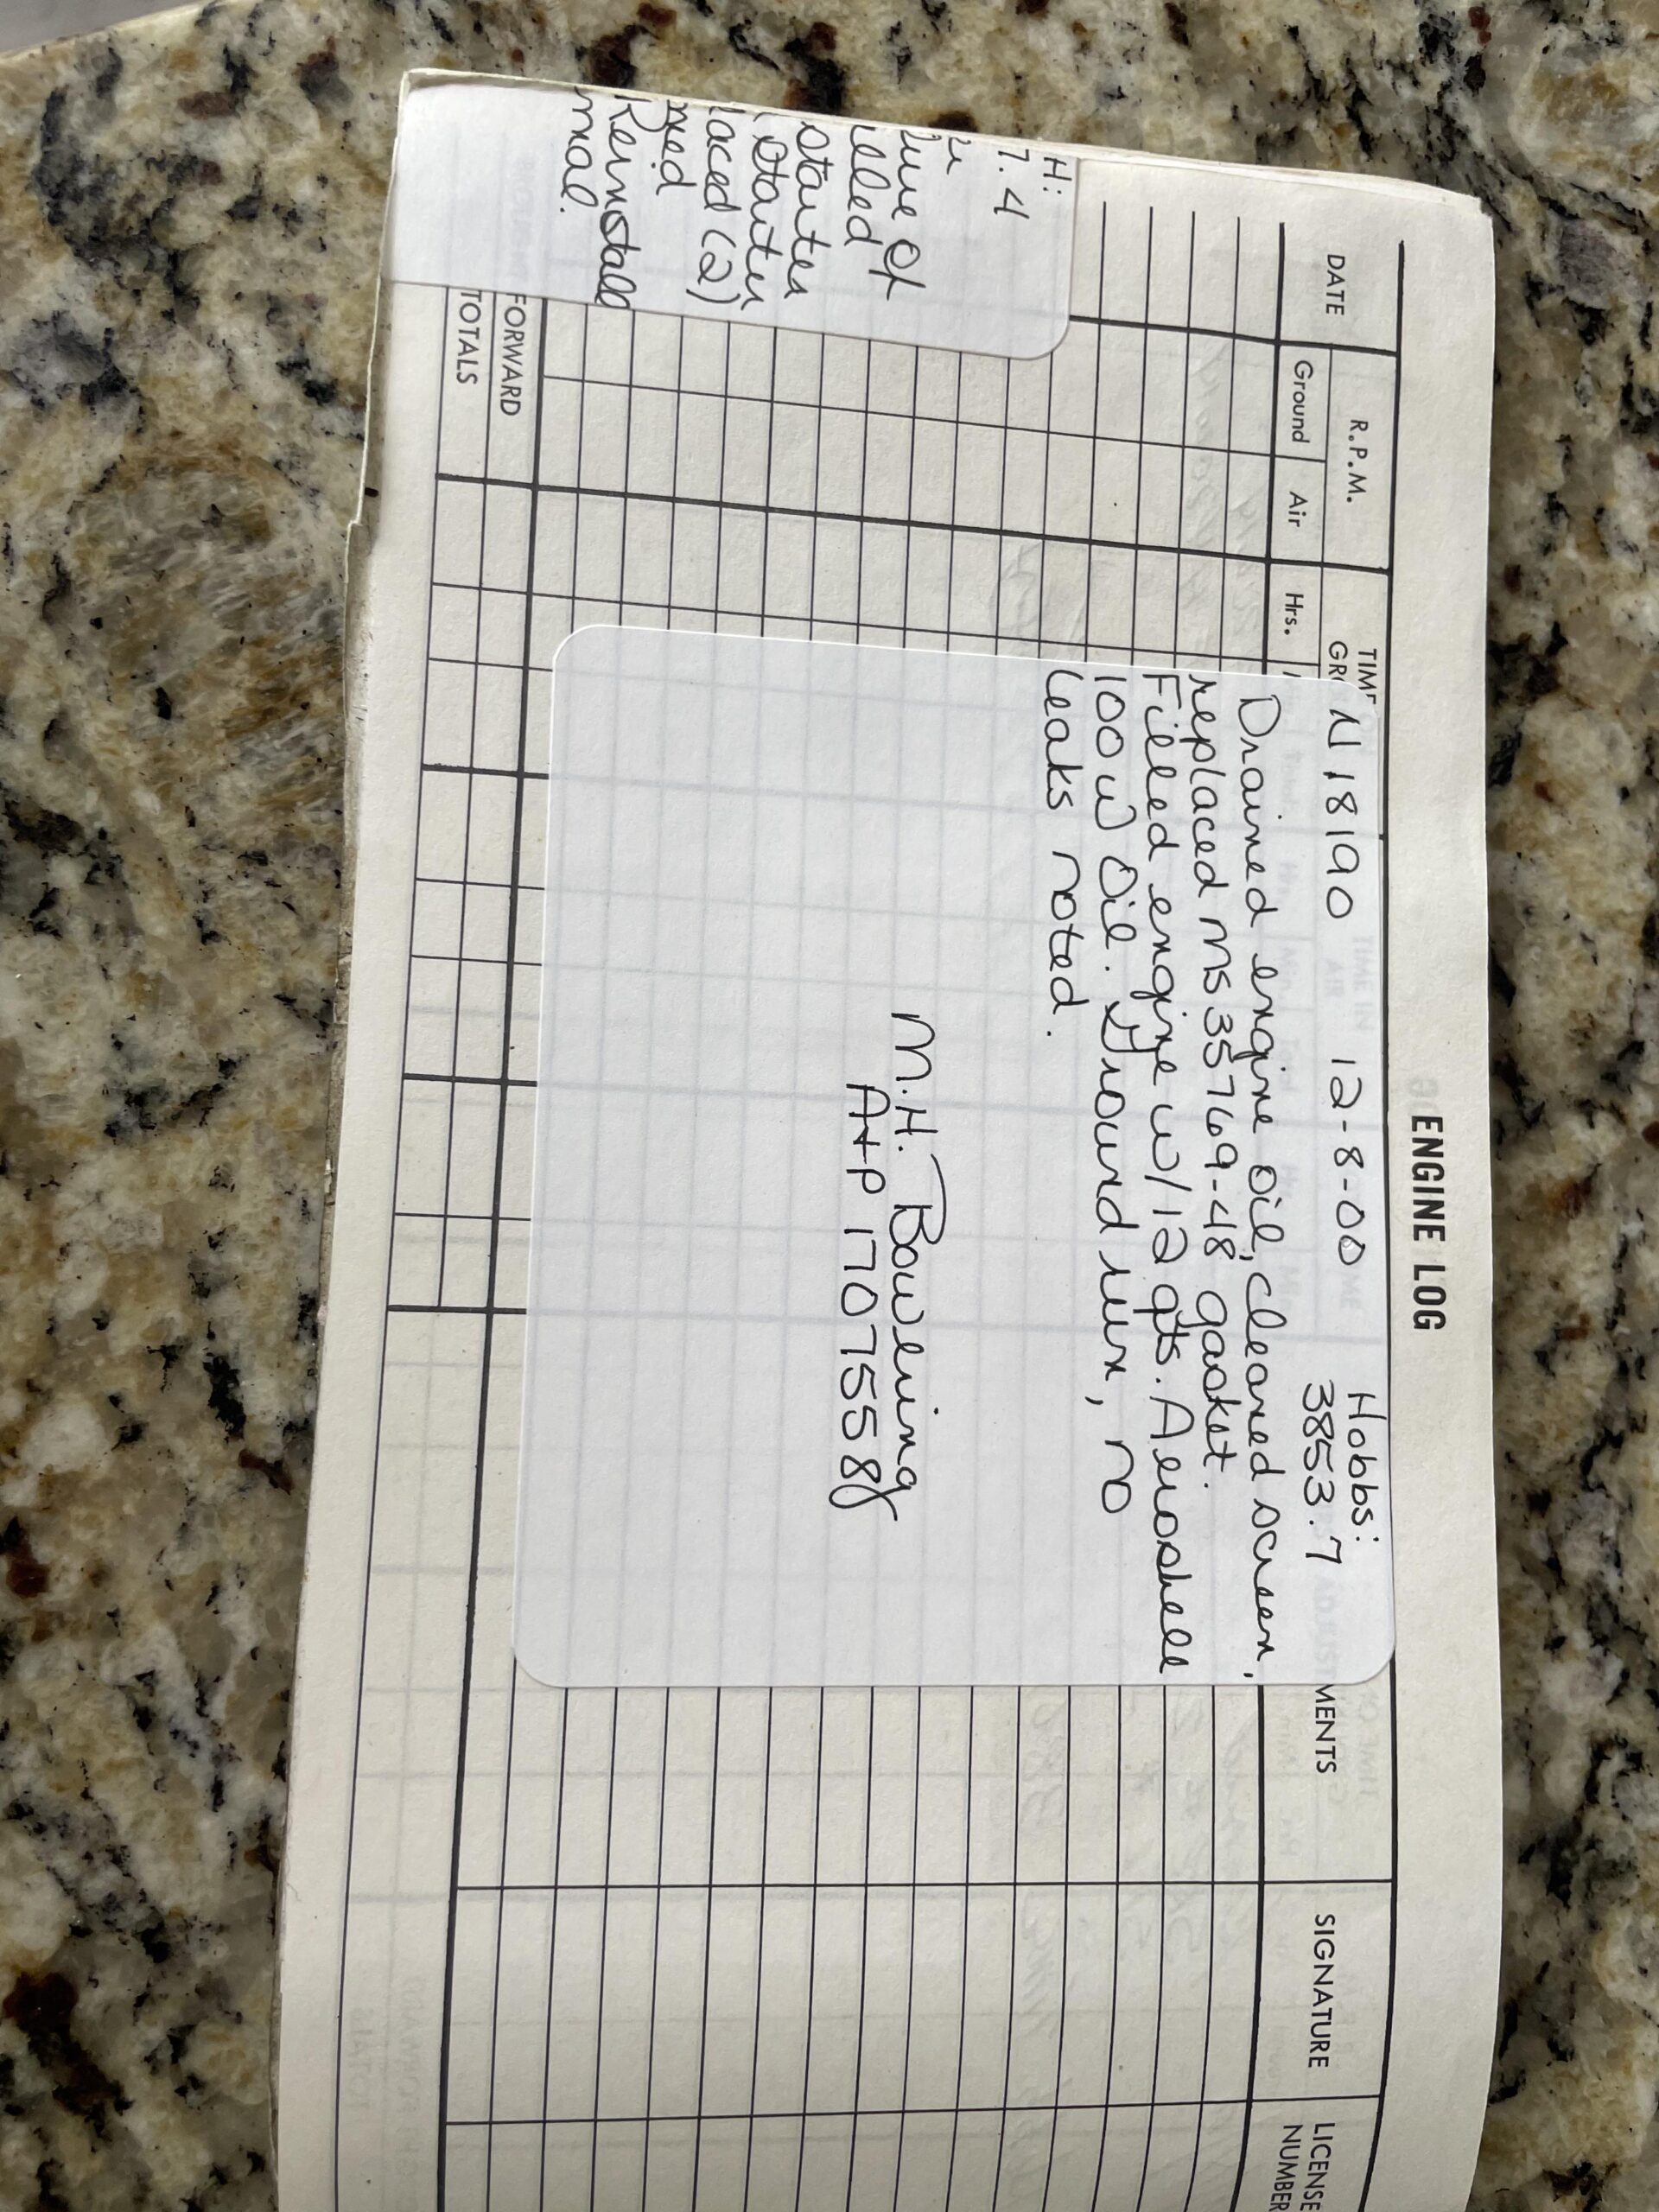 ENGINE LOG
DATE
R.P.M.
Ground
Air
TIME
GR
Hrs.
MENTS
SIGNATURE
LICENSE
NUMBER
N18190 12-8-00 Hobbs:
3853.7
Drained engine oil, cleaned screen,
replaced MS35769-48 gasket.
Filled engine w/12 qts. Aeroshell
100w oil. Ground run, no
leaks noted.
M.H. Bowling
A+P 1707558
H:
7.4
lled
starter
starter
laced (2)
Reinstall
mal.
FORWARD
TOTALS